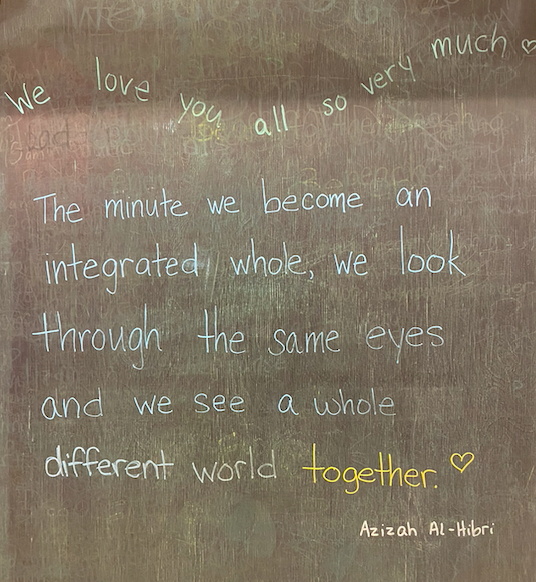 We love you all so very much ♡
The minute we become an
integrated whole, we look
through the same eyes
and we see a whole
different world together. ♡
Azizah Al-Hibri